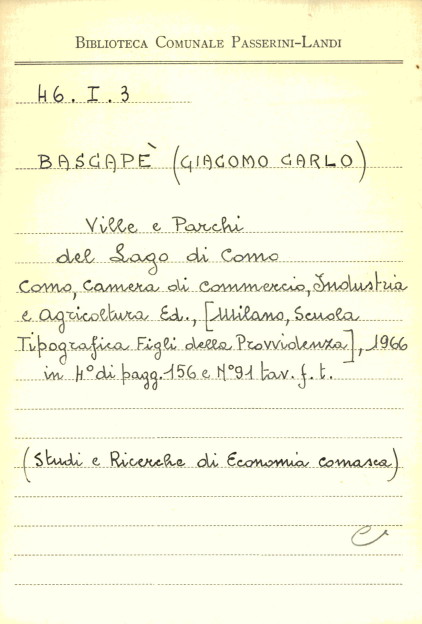 BIBLIOTECA COMUNALE PASSERINI-LANDI
46. I. 3
BASCAPÈ (GIACOMO CARLO)
Ville e Parchi
del Lago di Como
Como, Camera di Commercio, Industria
e Agricoltura Ed., [Milano, Scuola
Tipografica Figli della Provvidenza], 1966
in 4° di pagg. 156 e N° 91 tav. f. t.
(Studi e Ricerche di Economia comasca)